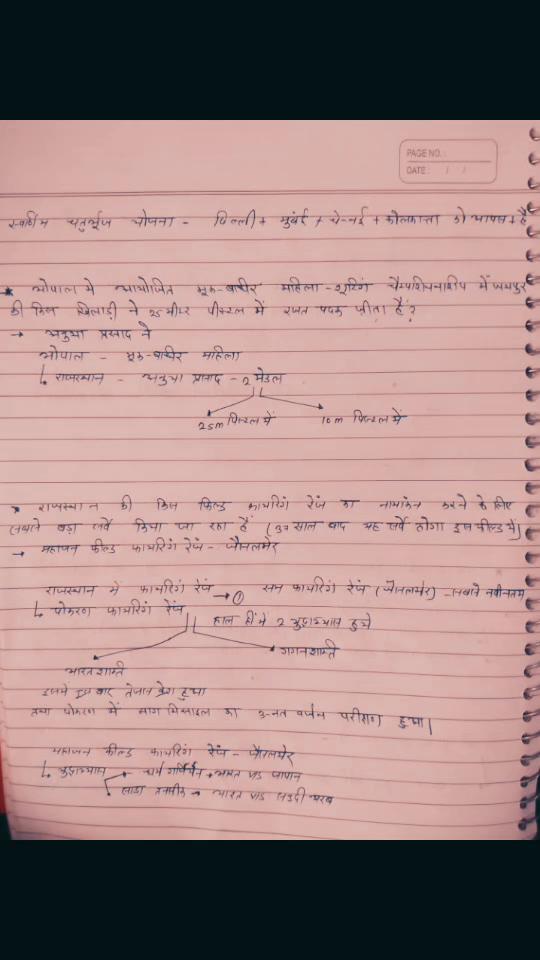 PAGE NO.:
DATE: / /
स्वर्णिम चतुर्भुज योजना - दिल्ली + मुंबई + चेन्नई + कोलकात्ता को
* भोपाल मे आयोजित मूक-बाधीर महिला-शूटिंग चैम्पीयनशीप में जयपुर
की किस खिलाड़ी ने 25 मीटर पीस्टल में रजत पदक जीता है?
→ अनुया प्रसाद ने
भोपाल - मूक-बाधीर महिला
↳ राजस्थान - अनुया प्रसाद - 2 मेडल
25m पिस्टल में 10m पिस्टल में
* राजस्थान की किस फिल्ड फायरिंग रेंज का नामांकन करने के लिए
सबसे बड़ा सर्वे किया जा रहा है (साल बाद यह सर्वे होगा इस फील्ड में)
→ महाजन फील्ड फायरिंग रेंज - जैसलमेर
राजस्थान में फायरिंग रेंज → ① सम फायरिंग रेंज (जैसलमेर) - सबसे नवीनतम
↳ पोकरण फायरिंग रेंज हाल ही में 2 युद्धाभ्यास हुये
भारत शक्ति गगन शक्ति
इसमें इस बार तेजस क्रेश हुआ
तथा पोकरण में नाग मिसाइल का उन्नत वर्जन परीक्षण हुआ।
महाजन फील्ड फायरिंग रेंज - जैसलमेर
↳ युद्धाभ्यास → धर्म गार्जियन → भारत vs जापान
सादा तनसीक → भारत vs सऊदी अरब